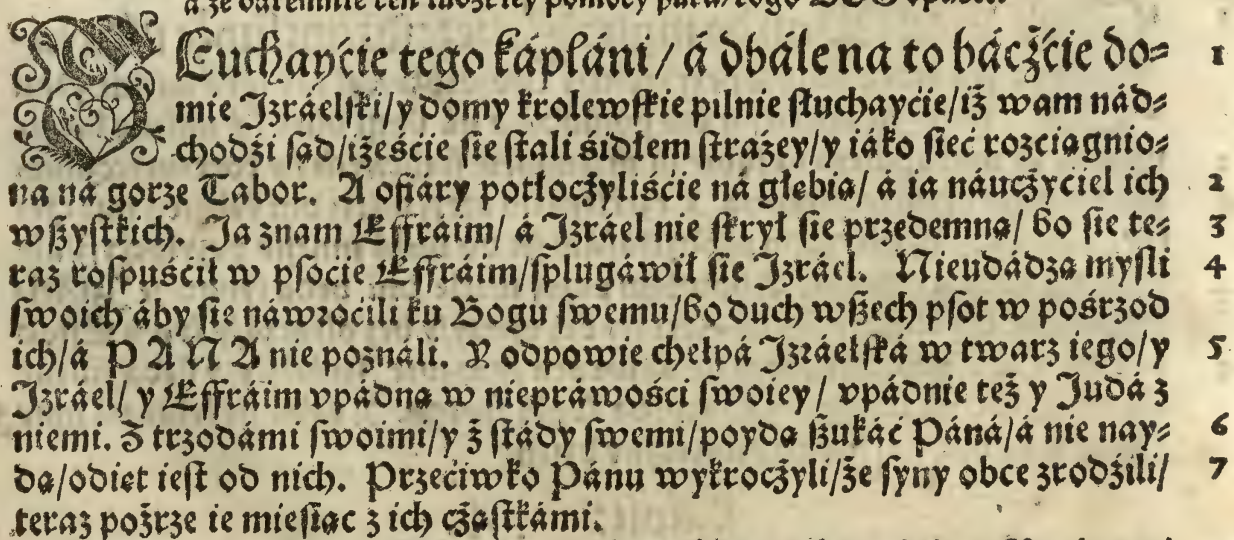 SŁuchayćie tego káplani / á dbále na to báczćie do= 1
mie Jzráelſki/y domy krolewſkie pilnie ſłuchayćie/iż wam nád=
chodźi ſąd/iżeśćie ſie ſtali śidłem ſtrażey/y iáko ſieć rozciągnio=
na ná gorze Tabor. A ofiáry potłoczyliśćie ná głebią/ á ia náuczyćiel ich 2
wßyſtkich. Ja znam Effráim/ á Jzráel nie ſkrył ſie przedemną/ bo ſie te= 3
raz roſpuśćił w pſoćie Effráim/ſplugáwił ſie Jzráel. Nieudádzą myſli 4
ſwoich áby ſie náwroćili ku Bogu ſwemu/bo duch wßech pſot w pośrzod
ich/á PANA nie poználi. Y odpowie chełpá Jzráelſká w twarz iego/y 5
Jzráel/ y Effráim vpádną w niepráwośći ſwoiey / vpádnie też y Judá z
niemi. Z trzodámi ſwoimi/y z ſtády ſwemi/poydą ßukáć Páná/á nie nay= 6
dą/odięt ieſt od nich. Przećiwko Pánu wykroczyli/że ſyny obce zrodźili/ 7
teraz pożrze ie mieſiąc z ich cząſtkámi.